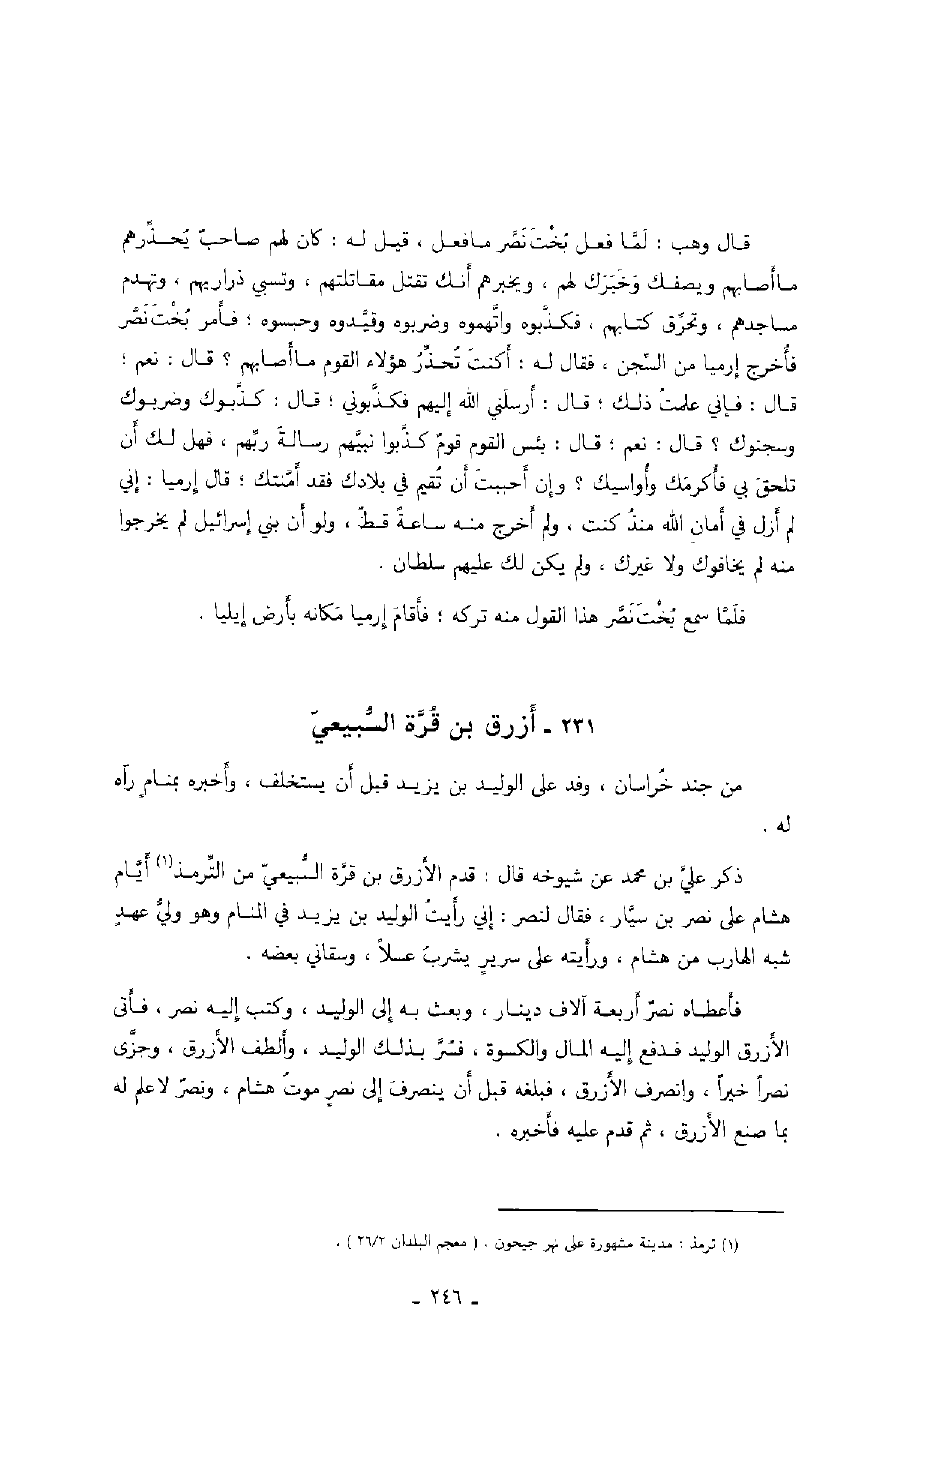 قال وهب : لَمَّا فعل بُخْتَ نَصَّر مافعل ، قيل له : كان لهم صاحبٌ يُحذِّرهم
ماأصابهم ويصفك وَخَبَرَك لهم ، ويخبرهم أنك تقتل مقاتلتهم ، وتسبي ذراريهم ، وتهدم
مساجدهم ، وتحرّق كتابهم ، فكذَّبوه واتَّهموه وضربوه وقيَّدوه وحبسوه ؛ فأمر بُخْتَ نَصَّر
فأُخرج إرميا من السِّجن ، فقال له : أكنتَ تُحذِّرُ هؤلاء القوم ماأصابهم ؟ قال : نعم ؛
قال : فإني علمتُ ذلك ؛ قال : أرسلَني الله إليهم فكذَّبوني ؛ قال : كذَّبوك وضربوك
وسجنوك ؟ قال : نعم ؛ قال : بئس القوم قومٌ كذَّبوا نبيَّهم رسالةَ ربِّهم ، فهل لك أن
تلحقَ بي فأكرمَك وأواسيك ؟ وإن أحببتَ أن تُقيم في بلادك فقد أمَّنتك ؛ قال إرميا : إني
لم أزل في أمان الله منذُ كنت ، ولم أخرج منه ساعةً قطّ ، ولو أن بني إسرائيل لم يخرجوا
منه لم يخافوك ولا غيرك ، ولم يكن لك عليهم سلطان .
فلَمَّا سمع بُخْتَ نَصَّر هذا القول منه تركه ؛ فأقامَ إرميا مَكانه بأرض إيليا .
٢٣١ ـ أزرق بن قُرَّة السُّبيعيّ
من جند خُراسان ، وفد على الوليد بن يزيد قبل أن يستخلف ، وأخبره بمنامٍ رآه
له .
ذكر عليُّ بن محمد عن شيوخه قال : قدم الأزرق بن قرَّة السُّبيعيّ من التِّرمذ(١) أيَّام
هشام على نصر بن سيَّار ، فقال لنصر : إني رأيتُ الوليد بن يزيد في المنام وهو وليُّ عهدٍ
شبه الهارب من هشام ، ورأيته على سريرٍ يشربَ عسلاً ، وسقاني بعضه .
فأعطاه نصرٌ أربعة آلاف دينار ، وبعث به إلى الوليد ، وكتب إليه نصر ، فأتى
الأزرق الوليد فدفع إليه المال والكسوة ، فسُرَّ بذلك الوليد ، وألطف الأزرق ، وجزَّى
نصراً خيراً ، وانصرف الأزرق ، فبلغه قبل أن ينصرفَ إلى نصرٍ موتُ هشام ، ونصرٌ لاعلم له
بما صنع الأزرق ، ثم قدم عليه فأخبره .
(١) ترمذ : مدينة مشهورة على نهر جيحون . ( معجم البلدان ٢٦/٢ ) .
ـ ٢٤٦ ـ